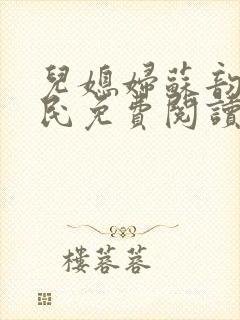 兒媳婦蘇韵
民免費閱讀
樓蓉蓉